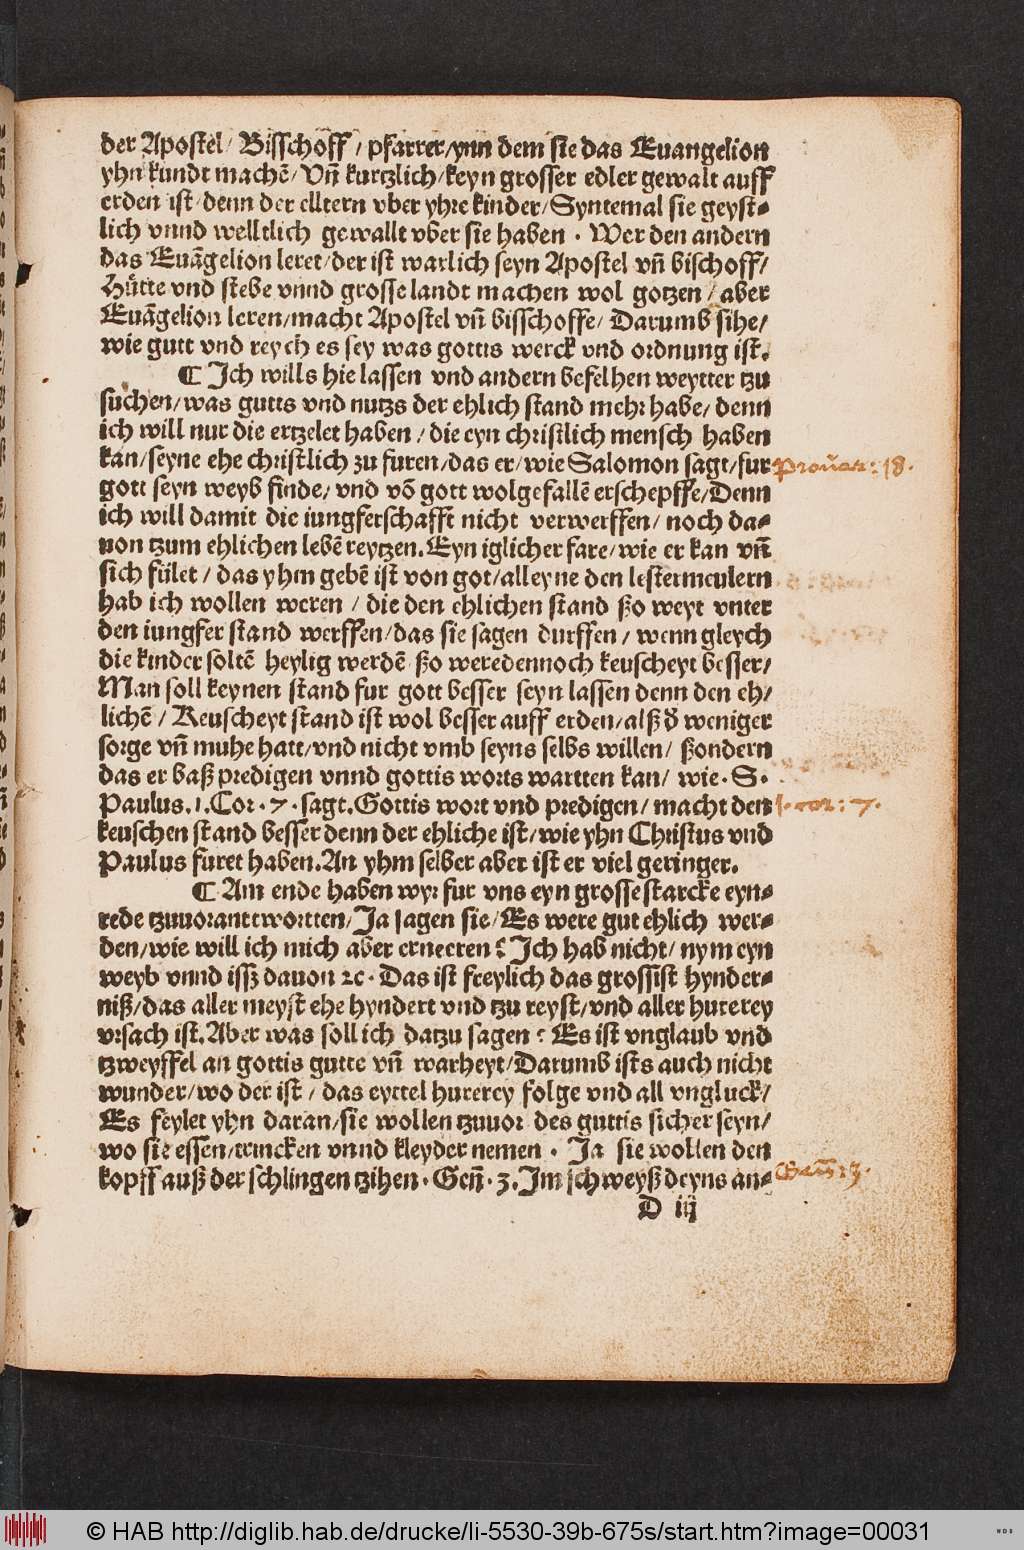 der Apostel/ Bisschoff/ pfarrer/ynn dem sie das Euangelion
yhn kundt machẽ/ Vñ kurtzlich/keyn grosser edler gewalt auff
erden ist/denn der elltern vber yhre kinder/Syntemal sie geyst⸗
lich vnnd welltlich gewallt vber sie haben . Wer den andern
das Euãgelion leret/der ist warlich seyn Apostel vñ bischoff/
Hütte vnd stebe vnnd grosse landt machen wol gotzen/ aber
Euãgelion leren/macht Apostel vñ bisschoffe/ Darumb sihe/
wie gutt vnd reych es sey was gottis werck vnd ordnung ist.
¶ Ich wills hie lassen vnd andern befelhen weytter tzu
suchen/was gutts vnd nutzs der ehlich stand mehr habe/ denn
ich will nur die ertzelet haben/die eyn christlich mensch haben
kan/seyne ehe christlich zu furen/das er/wie Salomon sagt/fur
Prouer: 18.
gott seyn weyb finde/ vnd võ gott wolgefallẽ erschepffe/Denn
ich will damit die iungferschafft nicht verwerffen/ noch da⸗
uon tzum ehlichen lebẽ reytzen. Eyn iglicher fare/wie er kan vñ
sich fület/das yhm gebẽ ist von got/alleyne den lestermeulern
hab ich wollen weren/die den ehlichen stand ßo weyt vnter
den iungfer stand werffen/das sie sagen durffen/ wenn gleych
die kinder soltẽ heylig werdẽ ßo were dennoch keuscheyt besser/
Man soll keynen stand fur gott besser seyn lassen denn den eh/
lichẽ/ Keuscheyt stand ist wol besser auff erden/alß d̃ weniger
sorge vñ muhe hatt/vnd nicht vmb seyns selbs willen/ ßondern
das er baß predigen vnnd gottis worts wartten kan/ wie . S.
Paulus. 1. Cor. 7. sagt. Gottis wort vnd predigen/ macht den
1. cor: 7.
keuschen stand besser denn der ehliche ist/wie yhn Christus vnd
Paulus furet haben. An yhm selber aber ist er viel geringer.
¶ Am ende haben wyr fur vns eyn grosse starcke eyn⸗
rede tzuuoranttwortten/Ja sagen sie/Es were gut ehlich wer⸗
den/wie will ich mich aber erneeren? Ich hab nicht/nym eyn
weyb vnnd issz dauon ꝛc. Das ist freylich das grossist hynder⸗
niß/das aller meyst ehe hyndert vnd tzu reyst/vnd aller hurerey
vrsach ist. Aber was soll ich datzu sagen? Es ist vnglaub vnd
tzweyffel an gottis gutte vñ warheyt/Darumb ists auch nicht
wunder/wo der ist/ das eyttel hurerey folge vnd all vngluck/
Es feylet yhn daran/sie wollen tzuuor des guttis sicher seyn/
wo sie essen/trincken vnnd kleyder nemen . Ja sie wollen den
kopff auß der schlingen tzihen. Geñ. 3. Im schweyß deyns an⸗
D iij
© HAB http://diglib.hab.de/drucke/li-5530-39b-675s/start.htm?image=00031